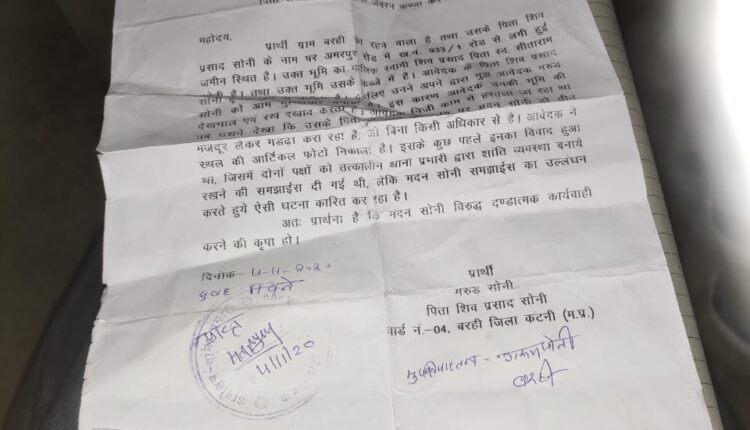 पिता
जबरन कब्जा कर
महोदय,
प्रार्थी ग्राम बरही का रहने वाला है तथा उसके पिता शिव
प्रसाद सोनी के नाम पर अमरपुर रोड में ख.नं. 933/1 रोड से लगी हुई
जमीन स्थित है। उक्त भूमि का मालिक स्वामी शिव प्रसाद पिता स्व. सीताराम
सोनी है। तथा उक्त भूमि उसके कब्जे में है। आवेदक के पिता शिव प्रसाद
सोनी को आम लिए उनने अपने द्वारा मुझ आवेदक गरुड
देखभाल एवं रख रखाव करता है। इस कारण आवेदक उनकी भूमि की
तब उसने देखा कि उसके पिता आवेदक निजी काम से जा रहा था
पर मदन सोनी दो तीन
मजदूर लेकर गडढ़ा करा रहा है, जो बिना किसी अधिकार से है। आवेदक ने
स्थल की आर्टिकल फोटो निकाला है। इसके कुछ पहले इनका विवाद हुआ
था, जिसमें दोनों पक्षों को तत्कालीन थाना प्रभारी द्वारा शांति व्यवस्था बनाये
रखने की समझाईस दी गई थी, लेकि मदन सोनी समझाईस का उल्लंघन
करते हुये ऐसी घटना कारित कर रहा है।
अतः प्रार्थना है कि मदन सोनी विरुद्ध दण्डात्मक कार्यवाही
करने की कृपा हो।
दिनांक-
प्रार्थी
गरुड सोनी
पिता शिव प्रसाद सोनी
वार्ड नं.-04, बरही जिला कटनी (म.प्र.)
4/11/20
बरही